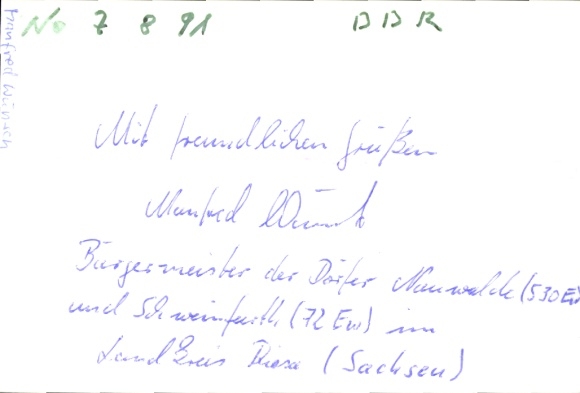 No 7 8 91 BBR
Manfred Wünsch
Mit freundlichen Grüßen
Manfred Wünsch
Bürgermeister der Dörfer Nauwalde (530 Ew)
und Schweinfurth (72 Ew) im
Landkreis Riesa (Sachsen)